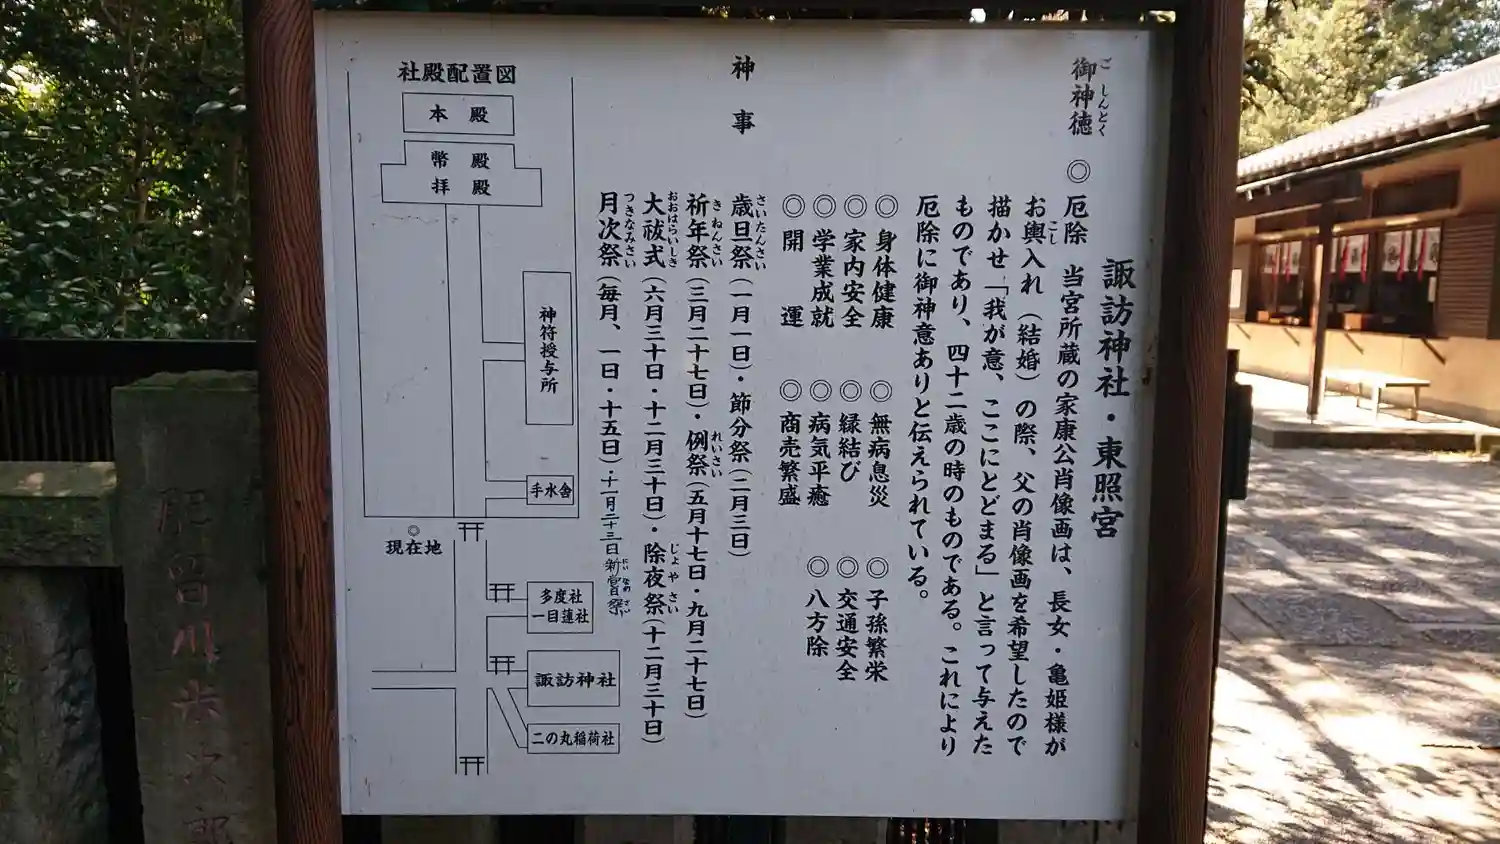 諏訪神社・東照宮
御神徳
ごしんとく
◎厄除 当宮所蔵の家康公肖像画は、長女・亀姫様が
お輿入れ(結婚)の際、父の肖像画を希望したので
こし
描かせ「我が意、ここにとどまる」と言って与えた
ものであり、四十二歳の時のものである。これにより
厄除に御神意ありと伝えられている。
◎身体健康 ◎無病息災 ◎子孫繁栄
◎家内安全 ◎縁結び ◎交通安全
◎学業成就 ◎病気平癒 ◎八方除
◎開運 ◎商売繁盛
神事
歳旦祭(一月一日)・節分祭(二月三日)
さいたんさい
祈年祭(三月二十七日)・例祭(五月十七日・九月二十七日)
きねんさい れいさい
大祓式(六月三十日・十二月三十日)・除夜祭(十二月三十日)
おおはらいしき じょやさい
月次祭(毎月、一日・十五日)・十一月二十三日新嘗祭
つきなみさい にいなめさい
社殿配置図
本殿
幣殿
拝殿
神符授与所
手水舎
◎
現在地
多度社
一目蓮社
諏訪神社
二の丸稲荷社